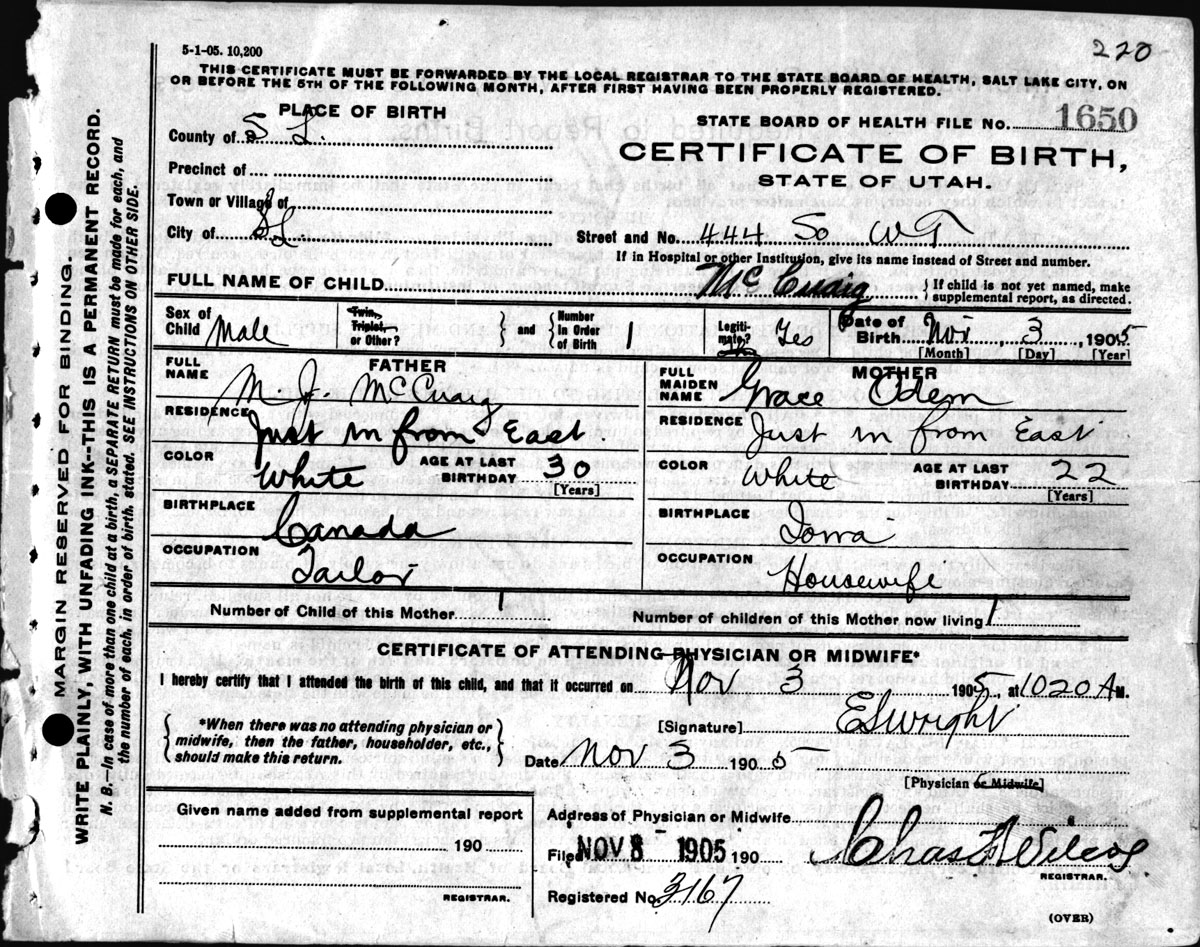 5-1-05. 10,200
220
THIS CERTIFICATE MUST BE FORWARDED BY THE LOCAL REGISTRAR TO THE STATE BOARD OF HEALTH, SALT LAKE CITY, ON
OR BEFORE THE 5TH OF THE FOLLOWING MONTH, AFTER FIRST HAVING BEEN PROPERLY REGISTERED.
PLACE OF BIRTH
County of S L.
Precinct of
Town or Village of
City of SL
STATE BOARD OF HEALTH FILE NO. 1650
CERTIFICATE OF BIRTH,
STATE OF UTAH.
Street and No. 444 So W T
If in Hospital or other Institution, give its name instead of Street and number.
FULL NAME OF CHILD McCuaig } If child is not yet named, make
supplemental report, as directed.
Sex of Child Male
Twin, Triplet, or Other? } and { Number In Order of Birth 1
Legiti-mate? Yes
Date of Birth Nov 3, 1905
[Month] [Day] [Year]
FATHER
FULL NAME M. J. McCuaig
RESIDENCE Just in from East.
COLOR White AGE AT LAST BIRTHDAY 30
[Years]
BIRTHPLACE Canada
OCCUPATION Tailor
MOTHER
FULL MAIDEN NAME Grace Odem
RESIDENCE Just in from East
COLOR White AGE AT LAST BIRTHDAY 22
[Years]
BIRTHPLACE Iowa
OCCUPATION Housewife
Number of Child of this Mother 1 Number of children of this Mother now living 1
CERTIFICATE OF ATTENDING PHYSICIAN OR MIDWIFE*
I hereby certify that I attended the birth of this child, and that it occurred on Nov 3 1905, at 1020 A M.
{ *When there was no attending physician or
midwife, then the father, householder, etc.,
should make this return. }
[Signature] ES Wright
Date Nov 3 1905
[Physician or Midwife]
Given name added from supplemental report
190
REGISTRAR.
Address of Physician or Midwife
Filed NOV 8 1905 190 Chas F Wilcox
REGISTRAR.
Registered No. 3167
(OVER)
MARGIN RESERVED FOR BINDING.
WRITE PLAINLY, WITH UNFADING INK--THIS IS A PERMANENT RECORD.
N. B.—In case of more than one child at a birth, a SEPARATE RETURN must be made for each, and
the number of each, in order of birth, stated. SEE INSTRUCTIONS ON OTHER SIDE.